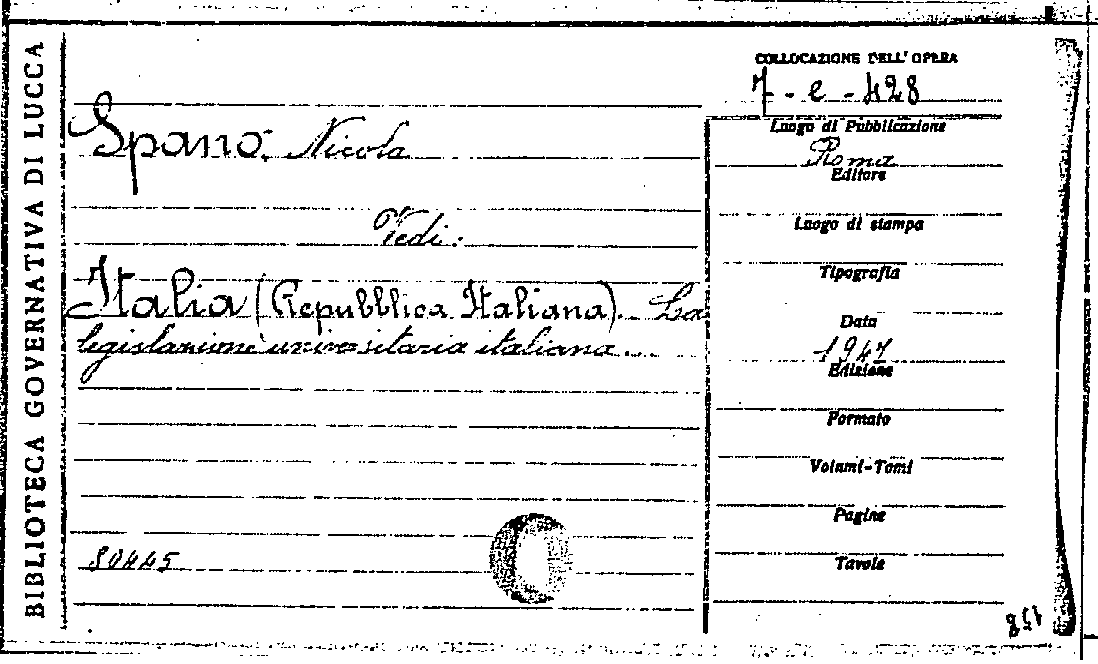 BIBLIOTECA GOVERNATIVA DI LUCCA
COLLOCAZIONE DELL'OPERA
7-e-428
Spano, Nicola
Vedi:
Italia (Repubblica Italiana). La
legislazione universitaria italiana...
80445
Luogo di Pubblicazione
Roma
Editore
Luogo di stampa
Tipografia
Data
1947
Edizione
Formato
Volumi-Tomi
Pagine
Tavole